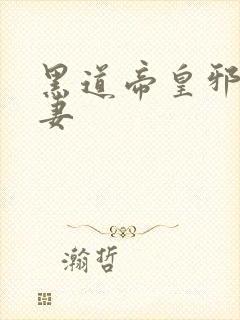 黑道帝皇邪
妻
瀚哲